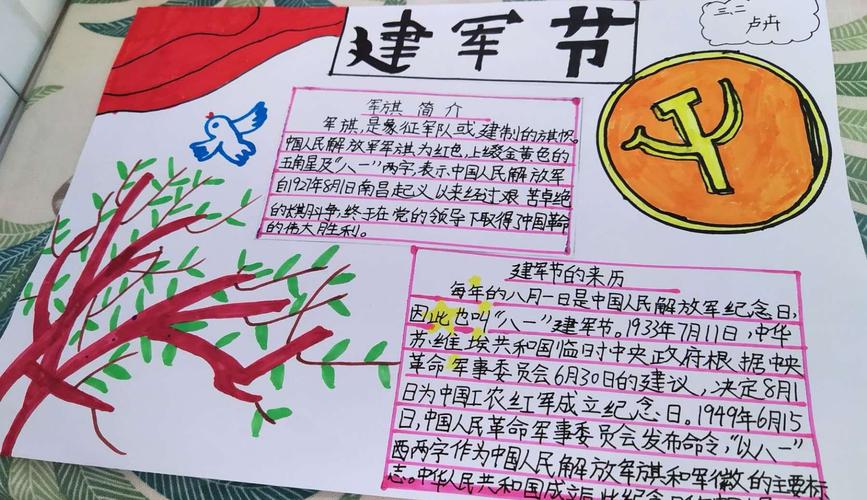 建军节
三、二
卢卉
军旗 简介
军旗,是象征军队或建制的旗帜。
中国人民解放军军旗为红色,上缀金黄色的
五角星及“八一”两字,表示中国人民解放军
自1927年8月1日南昌起义以来经过艰苦卓绝
的棋斗争,终于在党的领导下取得了中国革命
的伟大胜利。
建军节的来历
每年的八月一日是中国人民解放军纪念日,
因此也叫“八一”建军节。1933年7月11日,中华
苏维埃共和国临时中央政府根据中央
革命军事委员会6月30日的建议,决定8月1
日为中国工农红军成立纪念日。1949年6月15
日,中国人民革命军事委员会发布命令,“以八一”
西两字作为中国人民解放军旗和军徽的主要标
志。中华人民共和国成立后,此纪念日